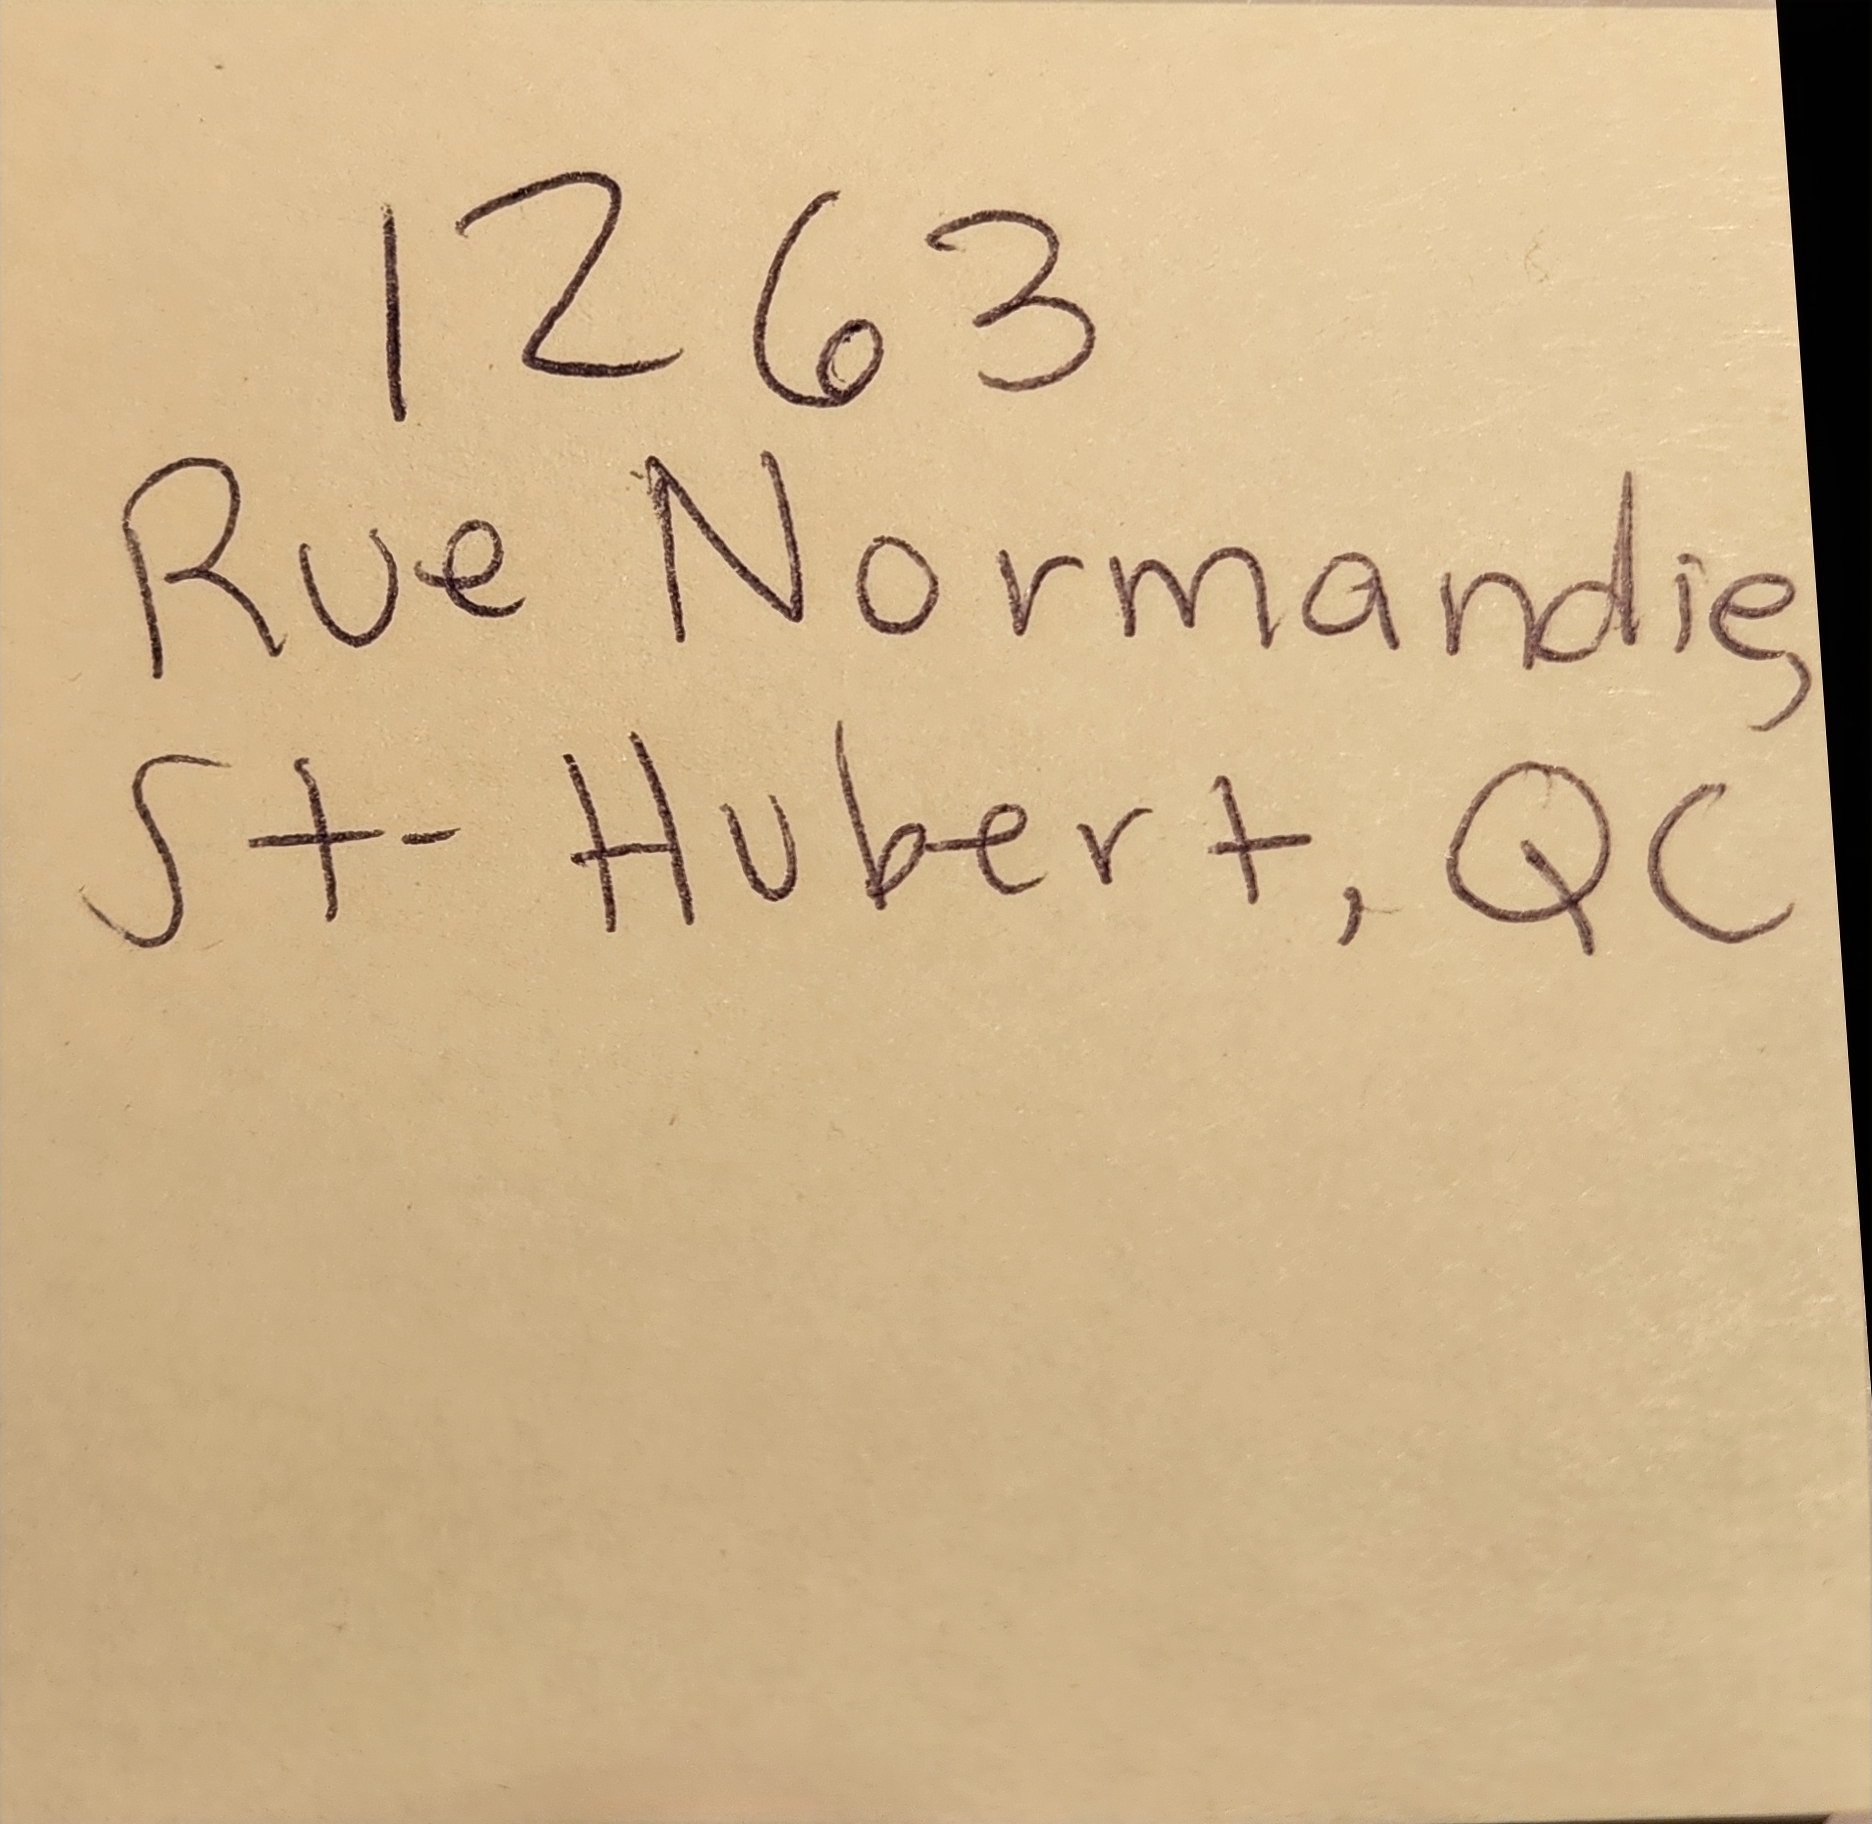 1263
Rue Normandie,
St-Hubert, QC